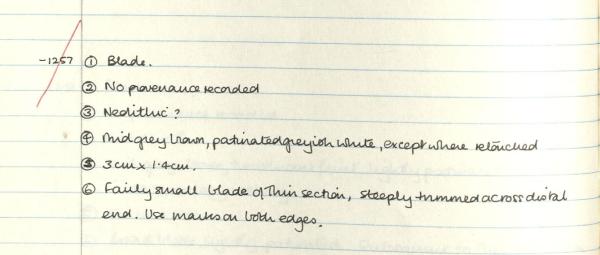 -1257 ① Blade.
② No provenance recorded
③ Neolithic?
④ Mid grey brown, patinated greyish white, except where retouched
⑤ 3cm x 1.4cm.
⑥ Fairly small blade of thin section, steeply trimmed across distal
end. Use marks on both edges.